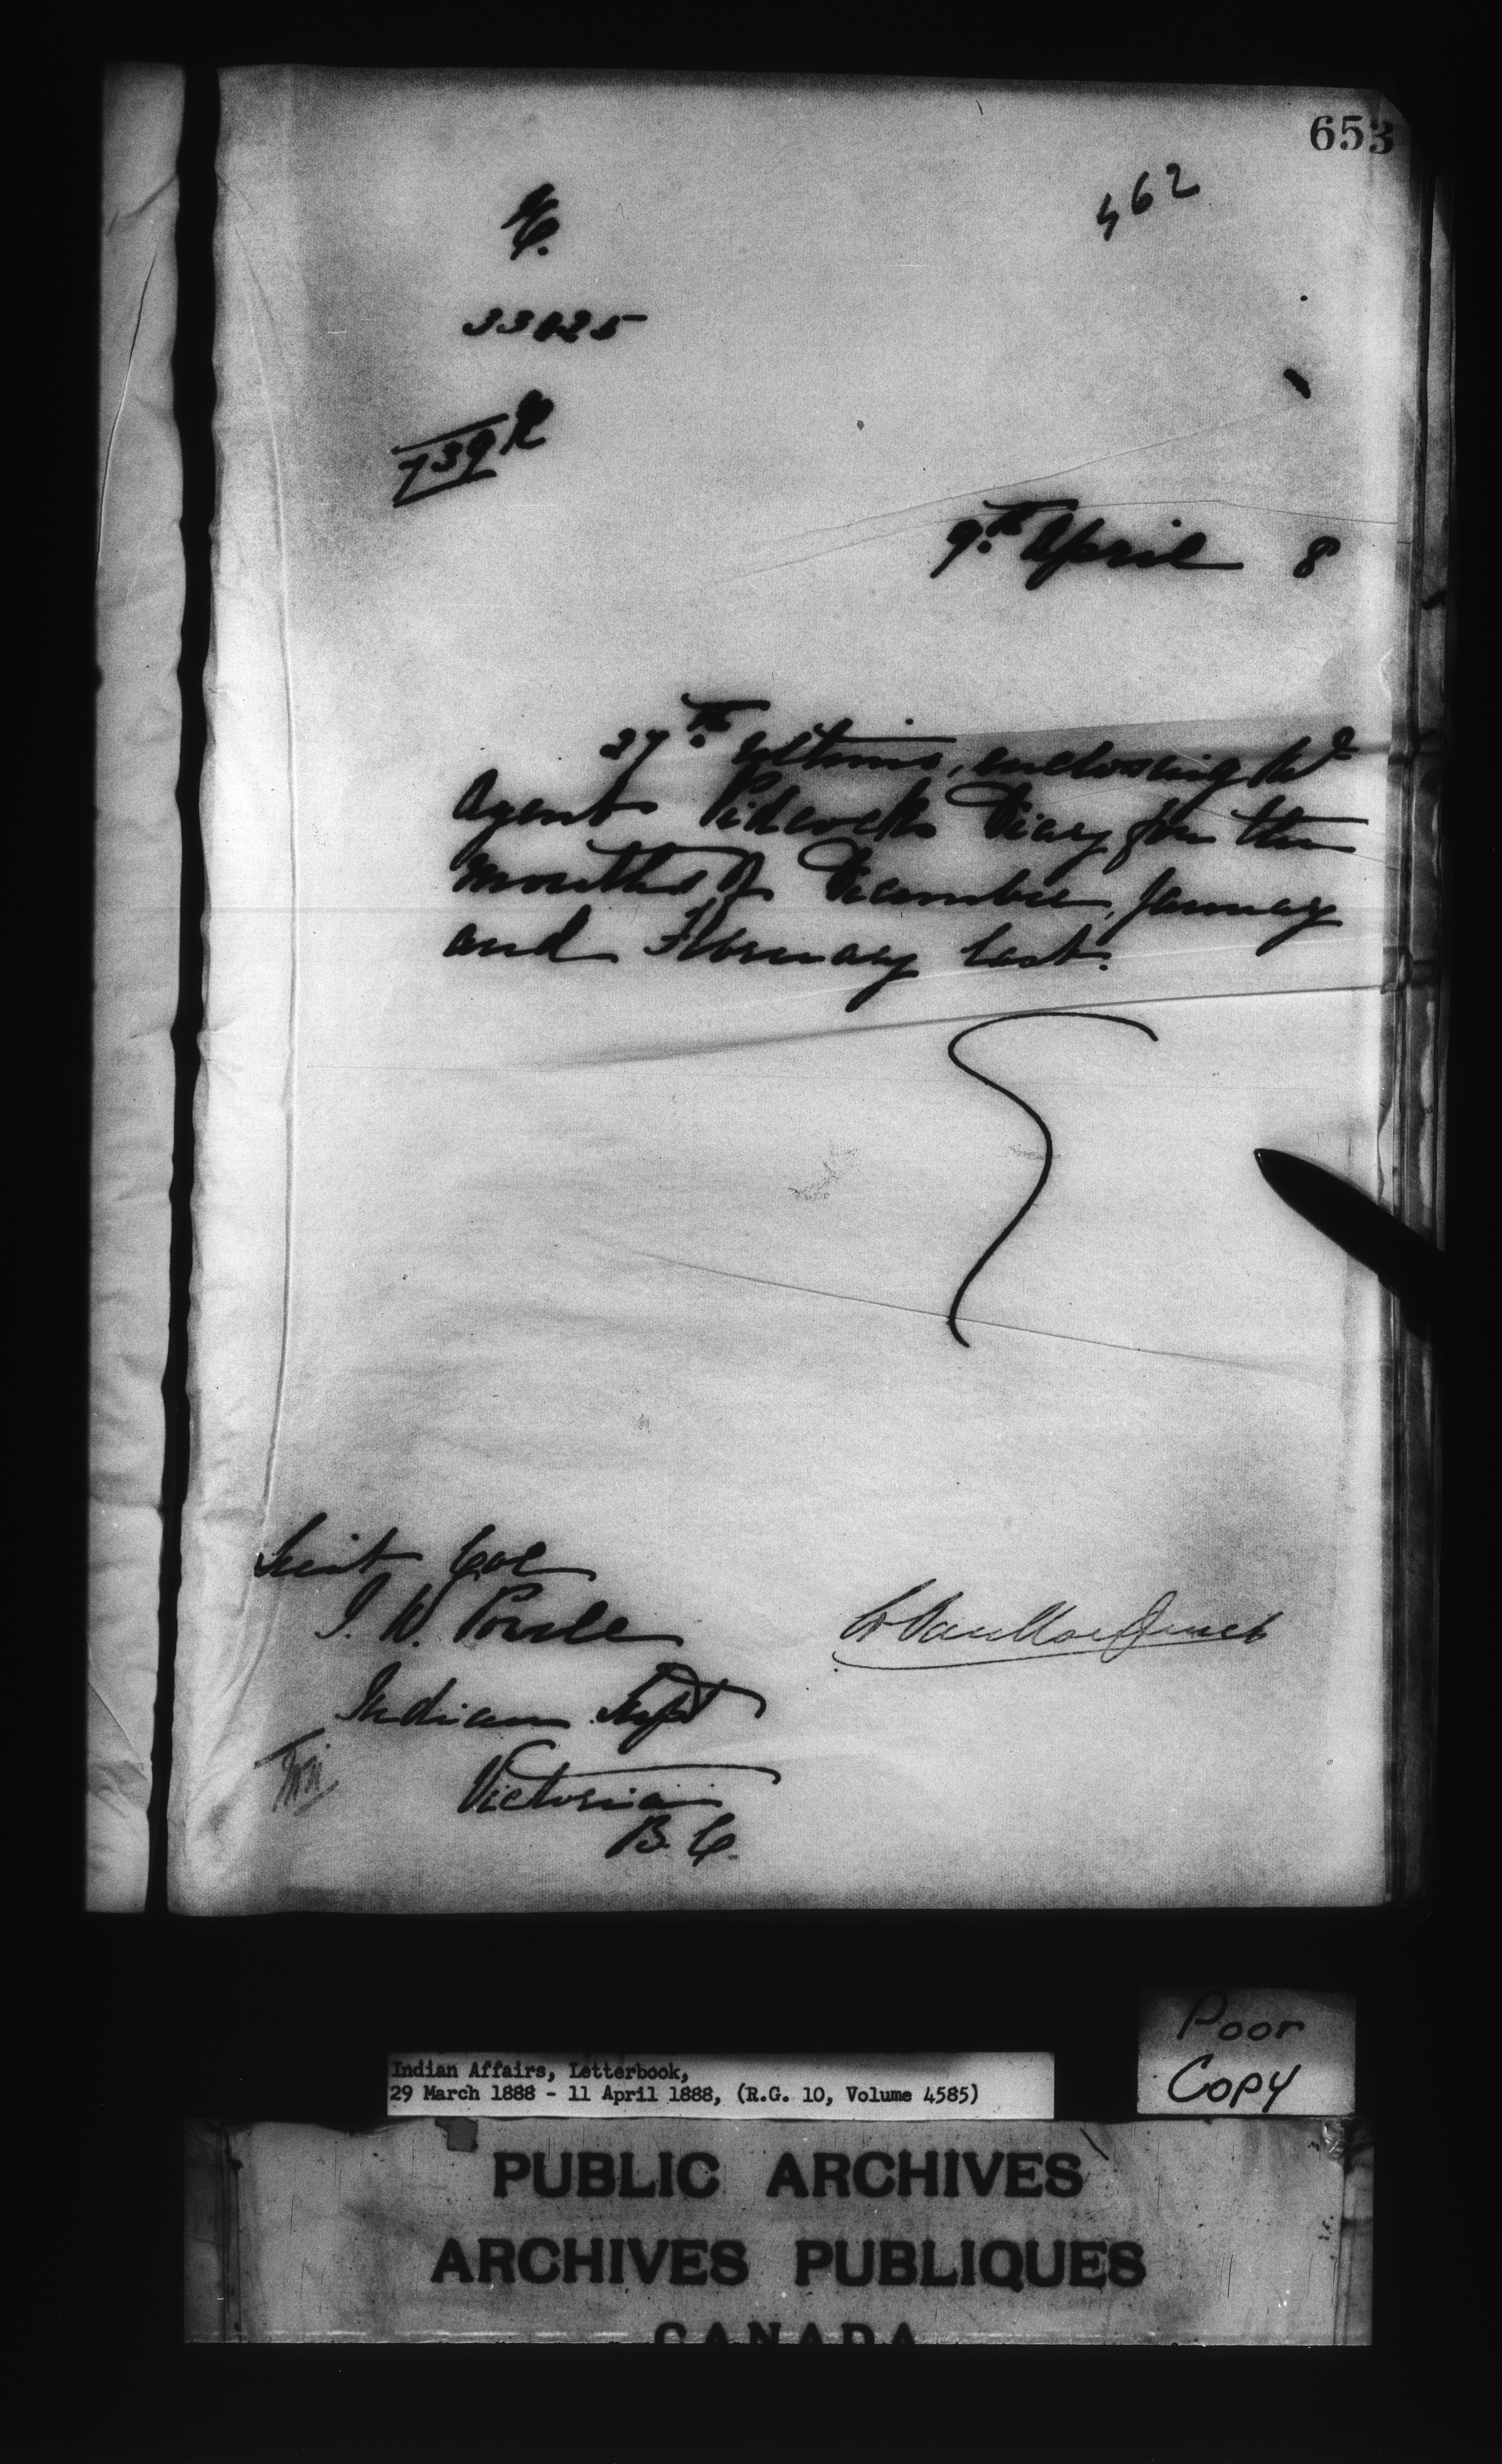 653
462
33025
739
9th April 8
27th ultimo, enclosing
Agent Pidcock's Diary for the
months of December, January
and February last.
Lieut Col
I. W. Powell
L. VanKoughnet
Indian Supt
Victoria
B.C.
Poor
Copy
Indian Affairs, Letterbook,
29 March 1888 - 11 April 1888, (R.G. 10, Volume 4585)
PUBLIC ARCHIVES
ARCHIVES PUBLIQUES
CANADA